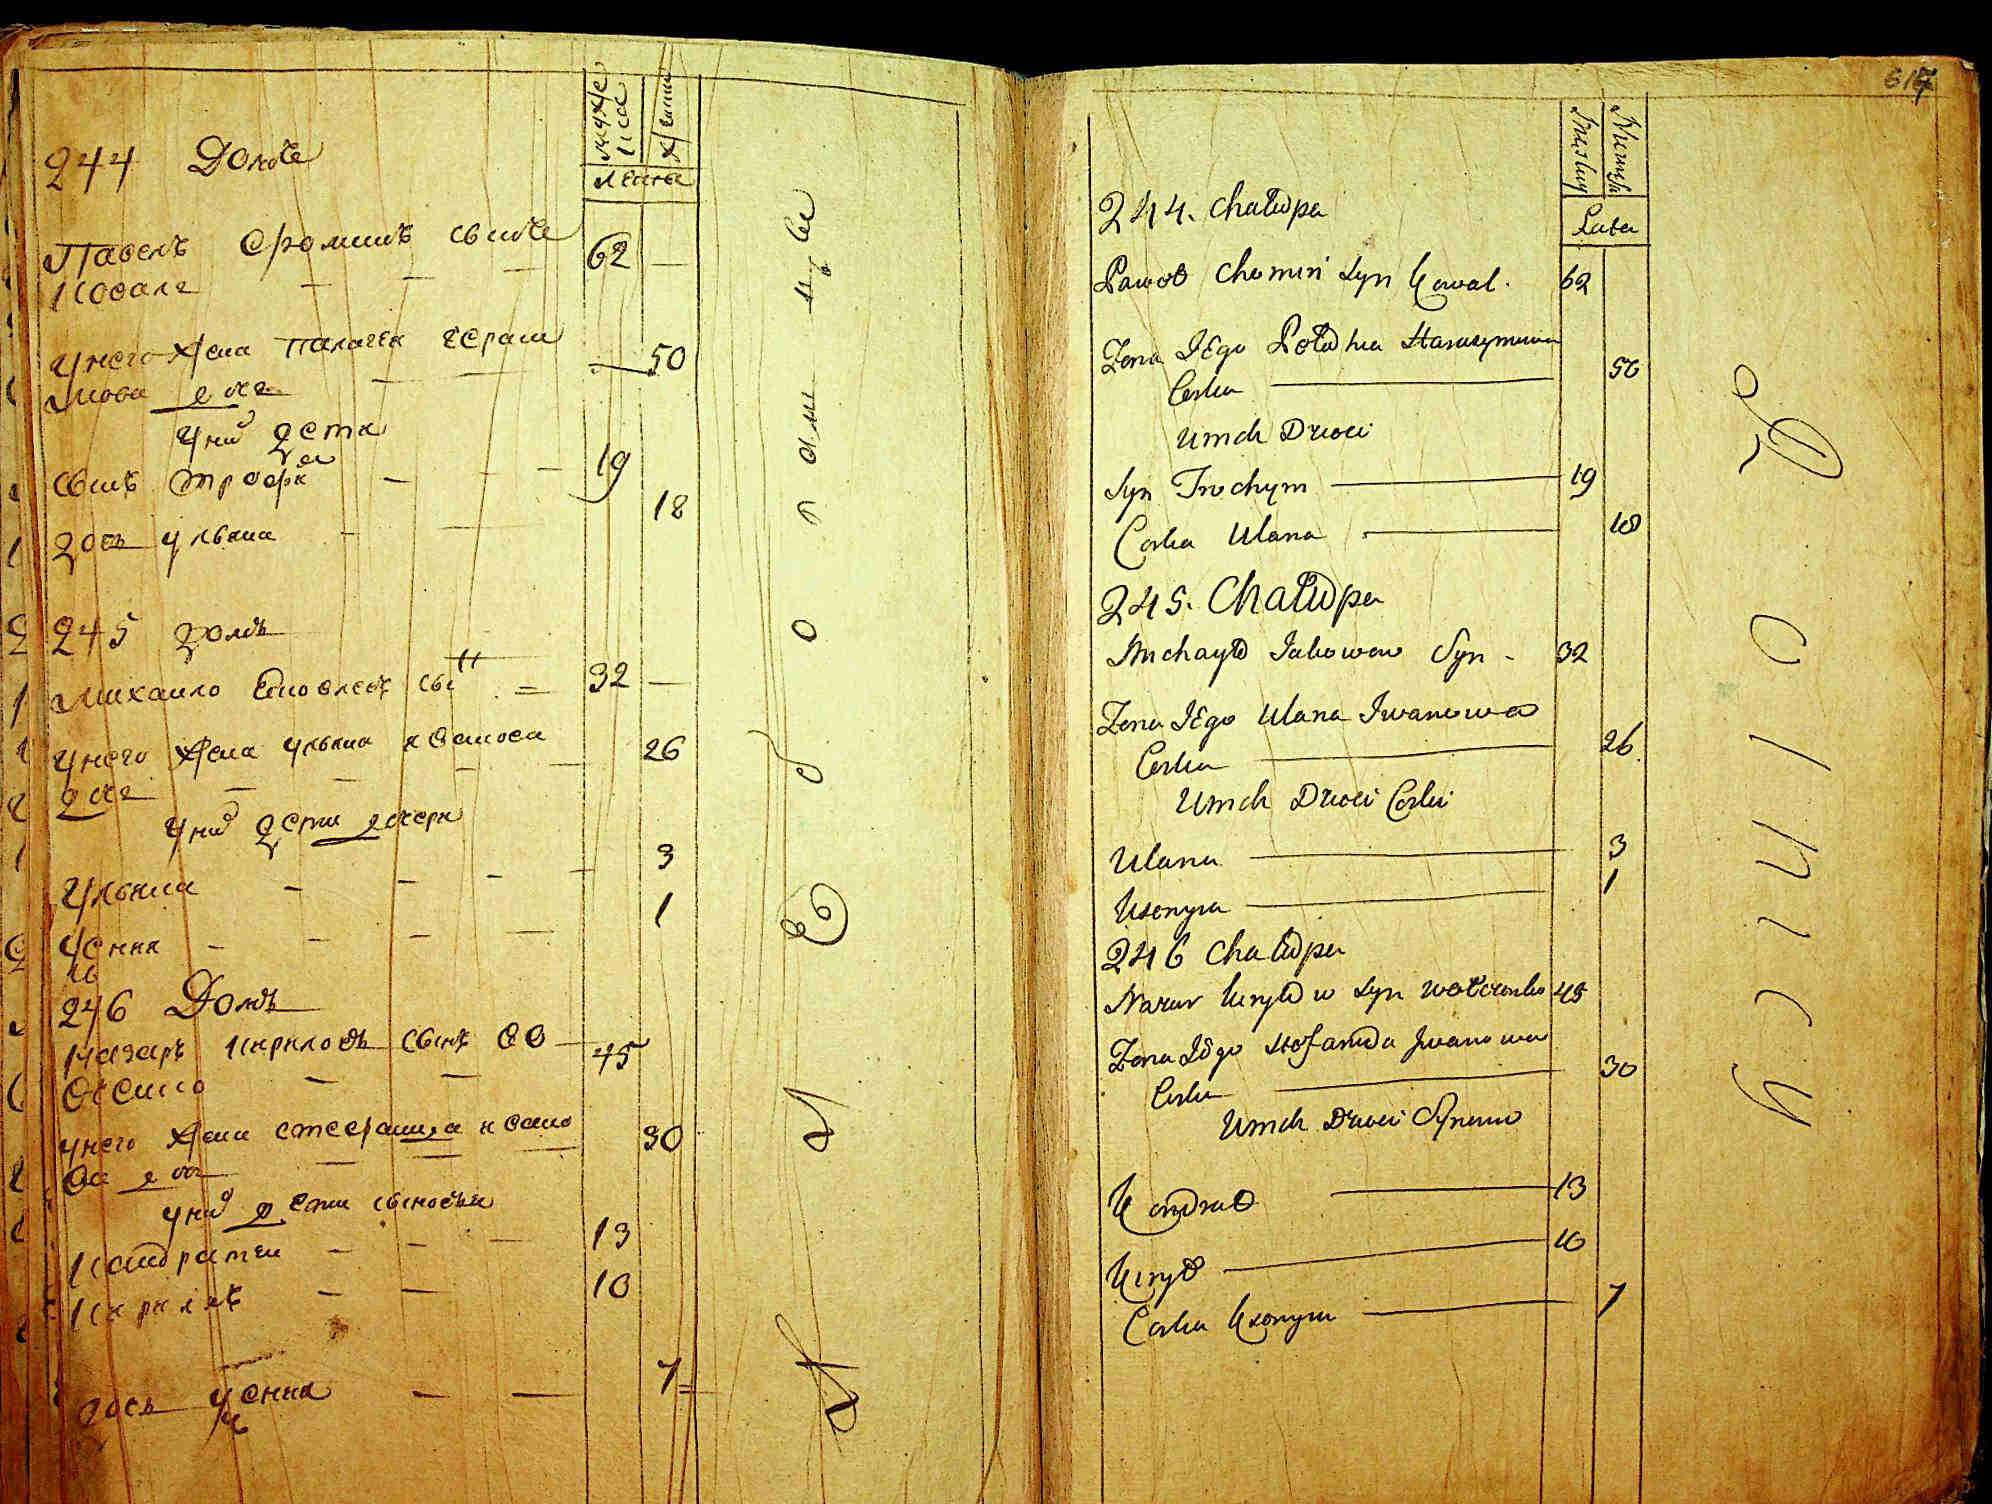 244 Домъ
Мужеска
Женска
Лѣта
Павелъ Фоминъ сынъ 62 —
Коваль
У него жена Палагея Гераси — 50
мова дочь
У них дети
сынъ Трофим 19
дочь Ульяна 18
245 домъ
Михайло сын 32 —
У него жена Ульяна Иванова 26
дочь
У них дети дочери
Ульяна 3
Ксения 1
246 Домъ
Назаръ Кириловъ сынъ Во 45
У него жена Стефанида Ивано 30
ва дочь
У них дети сыновья
Кондратей 13
Кирилъ 10
дочь Ксения 7
617
Męskey
Niewiesch
Lata
244. Chałupa
Paweł Chomin Syn Kowal. 62
Zona Iego Połachia Harasymowa
Corka 50
U nich Dzieci
Syn Trochym 19
Corka Ulana 18
245. Chałupa
Michayło Jakowow Syn - 32
Zona Iego Ulana Iwanowa
Corka 26
U nich Dzieci Corki
Ulana 3
Ksenyia 1
246 Chałupa
Nazar Kiryłow Syn 45
Zona Iego Stefanida Iwanowa
Corka 30
U nich Dzieci Synowie
Kondrat 13
Kirył 10
Corka Ksenyia 7
Dolnicy